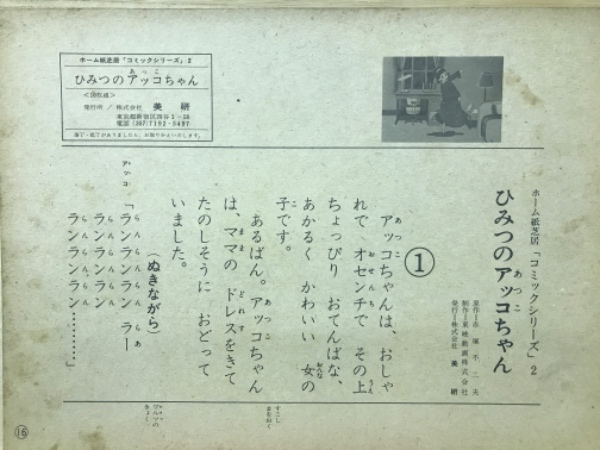 ホーム紙芝居「コミックシリーズ」2
ひみつのアッコちゃん
発行所/株式会社 美研
ホーム紙芝居「コミックシリーズ」2
ひみつのアッコちゃん
原作=赤塚不二夫
制作=東映動画株式会社
発行=株式会社 美研
①
アッコちゃんは、おしゃ
れで オセンチで その上
ちょっぴり おてんばな、
あかるく かわいい 女の
子です。
あるばん。アッコちゃん
は、ママの ドレスをきて
たのしそうに おどって
いました。
(ぬきながら)
アッコ「ランランラン ラー
ランランラン
ランランラン…………」
すこし
まをおく
ワルツの
きょく
⑯